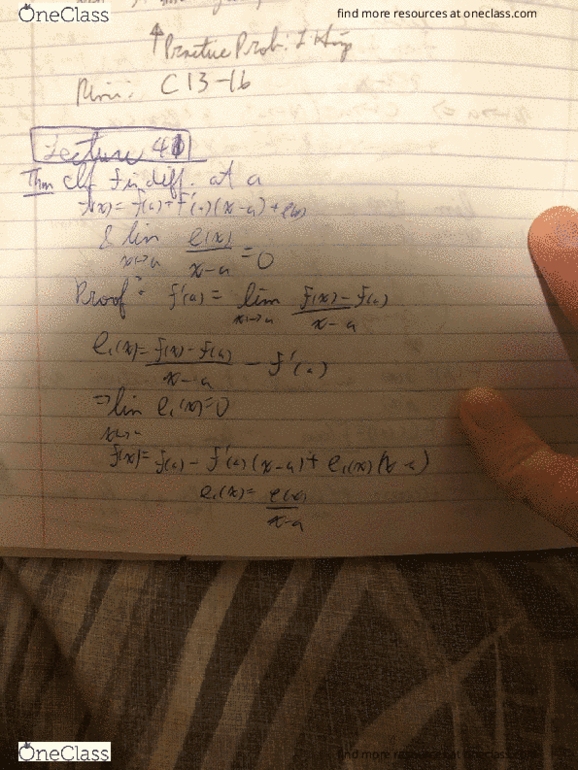 OneClass
find more resources at oneclass.com
↑ Practice Prob:
C 13-16
Lecture 41
Thm If f is diff. at a
f(x) = f(a) + f'(a)(x-a) + e(x)
& lim x→a e(x)/(x-a) = 0
Proof: f'(a) = lim x→a (f(x) - f(a))/(x-a)
e₁(x) = (f(x) - f(a))/(x-a) - f'(a)
⇒ lim e₁(x) = 0
f(x) = f(a) - f'(a)(x-a) + e₁(x)(x-a)
e₁(x) = e(x)/(x-a)
OneClass
find more resources at oneclass.com